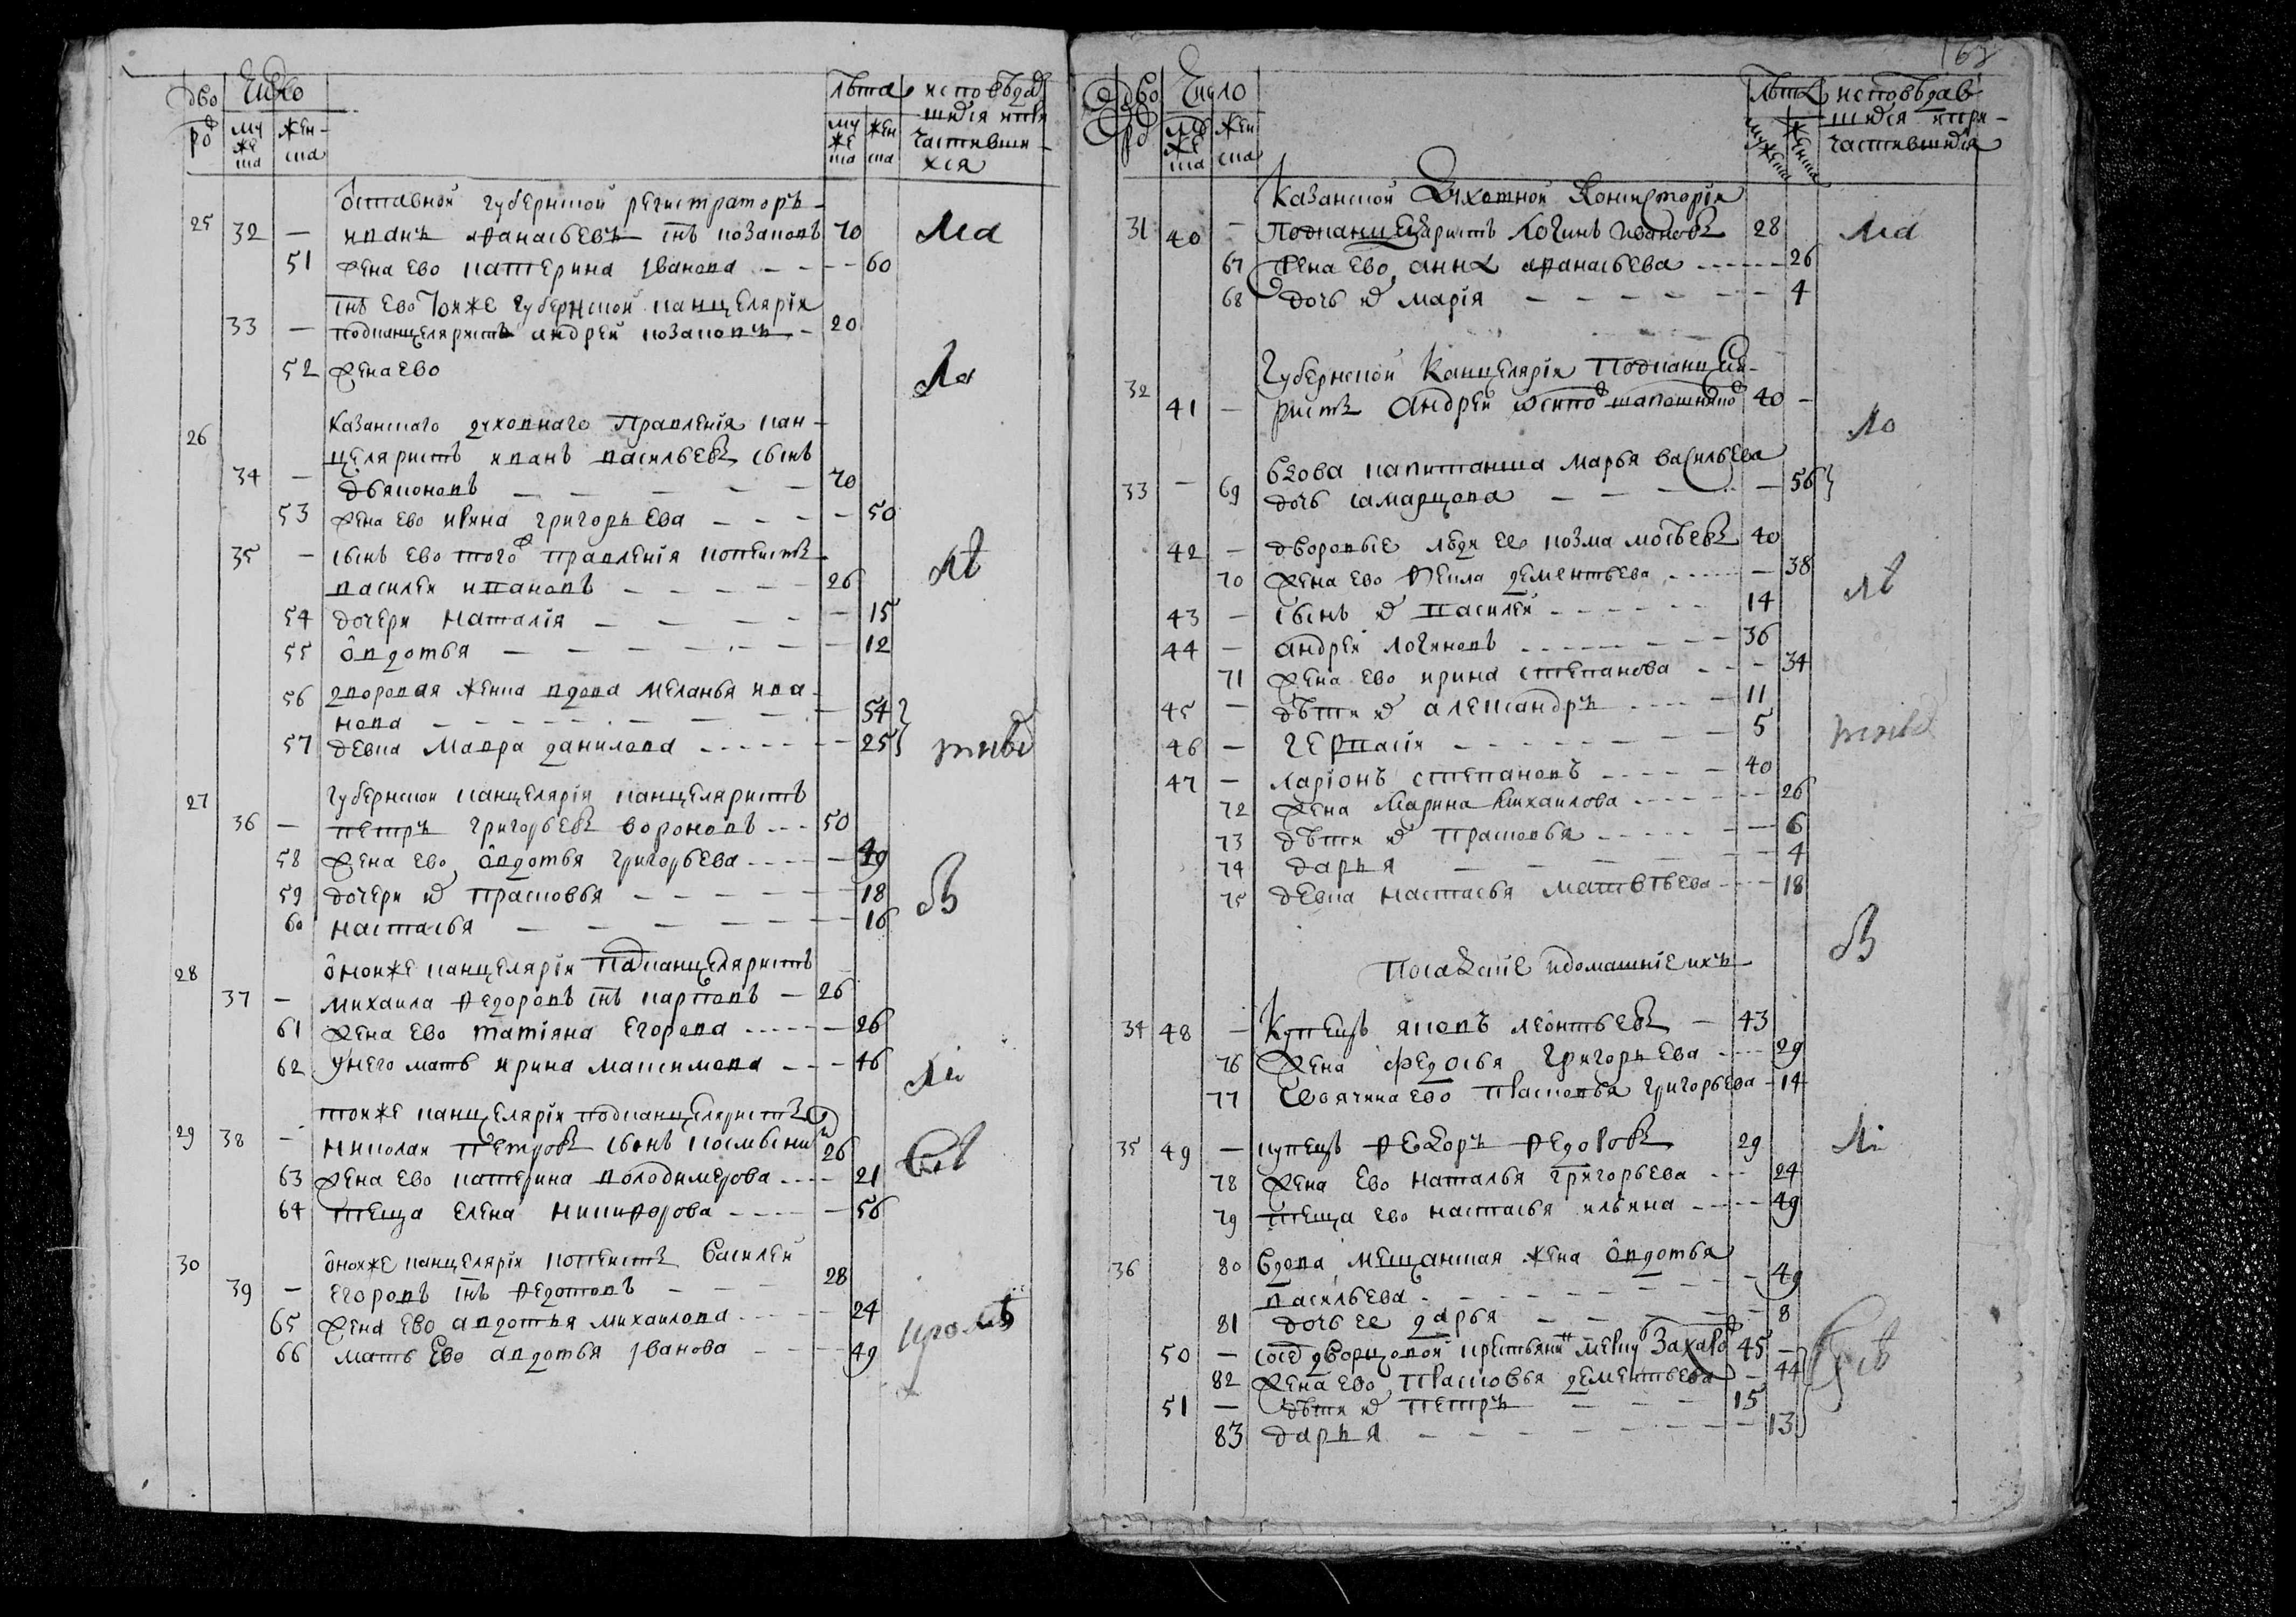 дворо число лѣта исповѣдав
шихся и при
частивши
хся
муже ска жен ска муже ска жен ска
отставной губернской регистраторъ
25 32 — иванъ афанасьевъ снъ козаковъ 70
51 жена ево катерина иванова 60
снъ ево тоиже губернской канцеляріи
33 — подканцеляристъ андреи козаковъ 20
52 жена ево
26 казанскаго духовнаго правленія кан
целяристъ иванъ васильевъ сынъ
34 — дьяконовъ 70
53 жена ево ирина григорьева 50
35 — сынъ ево того правленія копеистъ
василеи ивановъ 26
54 дочери наталія 15
55 овдотья 12
56 дворовая женка вдова меланья ива
нова 54
57 девка мавра данилова 25
27 губернской канцеляріи канцеляристъ
36 — петръ григорьевъ вороновъ 50
58 жена ево овдотья григорьева 49
59 дочери их прасковья 18
60 настасья 16
28 оноиже канцеляріи падканцеляристъ
37 — михаила федоровъ снъ карповъ 26
61 жена ево татіяна егорова 26
62 у него мать ирина максимова 46
тоиже канцеляріи подканцеляристъ
29 38 — николаи петровъ сынъ 26
63 жена ево катерина володимерова 21
64 теща елена никифорова 56
30 оноиже канцеляріи копеистъ василеи
39 — егоровъ снъ федотовъ 28
65 жена ево авдотья михаилова 24
66 мать ево авдотья иванова 49
дворо число лѣта исповѣдав
шихся и при
частившихся
муже ска жен ска мужеска женска
казанской духовной консисторіи
31 40 — подканцеляристъ логинъ ивановъ 28
67 жена ево анна афанасьева 26
68 дочь их марія 4
32 губернской канцеляріи подканцеля
41 — ристъ андреи осипов шапошников 40
вдова капитанша марья васильева
33 — 69 дочь самарцова 56
42 — дворовые люди ее козма мосѣевъ 40
70 жена ево фекла дементьева 38
43 — сынъ их василеи 14
44 — андреи логиновъ 36
71 жена ево ирина степанова 34
45 — дѣти их александръ 11
46 — гервасіи 5
47 — ларіонъ степановъ 40
72 жена марина михаилова 26
73 дѣти их прасковья 6
74 дарья 4
75 девка настасья матвѣева 18
посацкіе и домашніе ихъ
34 48 — купецъ яковъ леонтьевъ 43
76 жена федосья григорьева 29
77 своячина ево прасковья григорьева 14
35 49 — купецъ федоръ федоровъ 29
78 жена ево наталья григорьева 24
79 теща ево настасья ильина 49
36 80 вдова мещанская жена овдотья
васильева 49
81 дочь ее дарья 8
50 — дворцовой крестьянин Захаров 45
82 жена ево прасковья дементьева 44
51 — дѣти их петръ 15
83 дарья 13